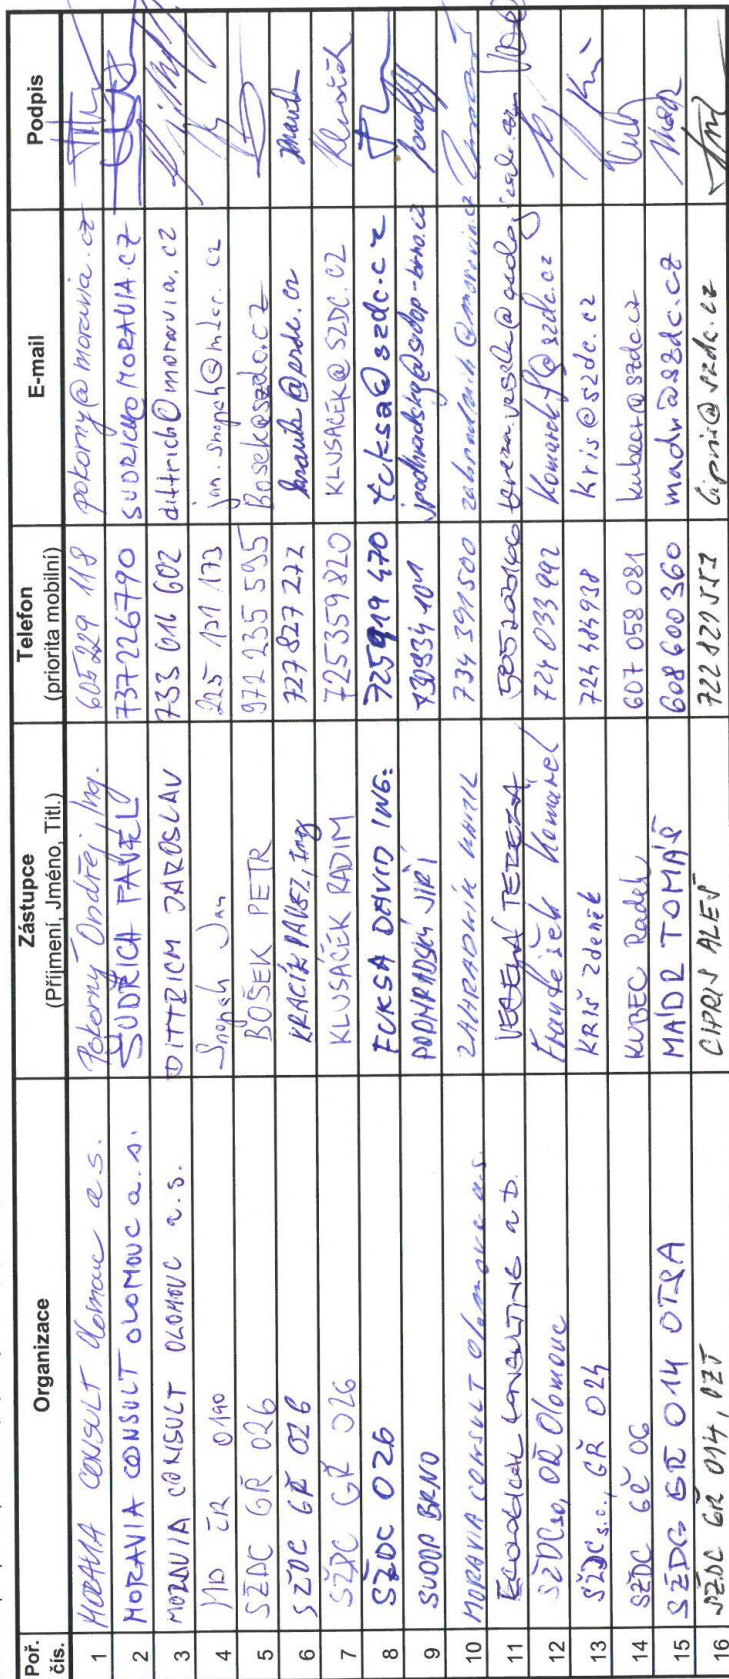 Poř. čís. Organizace Zástupce (Příjmení, Jméno, Titl.) Telefon (priorita mobilní) E-mail Podpis
1 MORAVIA CONSULT Olomouc a.s. Pokorný Ondřej, Ing. 605 229 118 pokorny@moravia.cz
2 MORAVIA CONSULT OLOMOUC a.s. ŠUDŘICH PAVEL 737226790 SUDRICH@MORAVIA.CZ
3 MORAVIA CONSULT OLOMOUC a.s. DITTRICH JAROSLAV 733 616 602 dittrich@moravia.cz
4 MD ČR O190 Snopek Jan 225 131 173 jan.snopek@mdcr.cz
5 SŽDC GŘ O26 BOŠEK PETR 972 235 595 Bosek@szdc.cz
6 SŽDC GŘ O26 727 827 272
7 SŽDC GŘ O26 KLUSÁČEK RADIM 725359820 KLUSACEK@SZDC.CZ
8 SŽDC O26 FUKSA DAVID ING. 725919470
9 SUDOP BRNO PODHRADSKÝ JIŘÍ
10 MORAVIA CONSULT Olomouc a.s. ZAHRADNÍK KAMIL 734 391500 zahradnik@moravia.cz
11 VESELÁ TEREZA
12 SŽDC s.o, OŘ Olomouc František Komárek 724 033 992
13 SŽDC s.o., GŘ O24 KRIŠ Zdeněk 724 484938 Kris@szdc.cz
14 SŽDC GŘ O6 KUBEC Radek 607 058 081 kubecr@szdc.cz
15 SŽDC GŘ O14 OTRA MÁDR TOMÁŠ 608 600 360 madr@szdc.cz
16 SŽDC GŘ O14, OZT CIPRIS ALEŠ 722 821 557